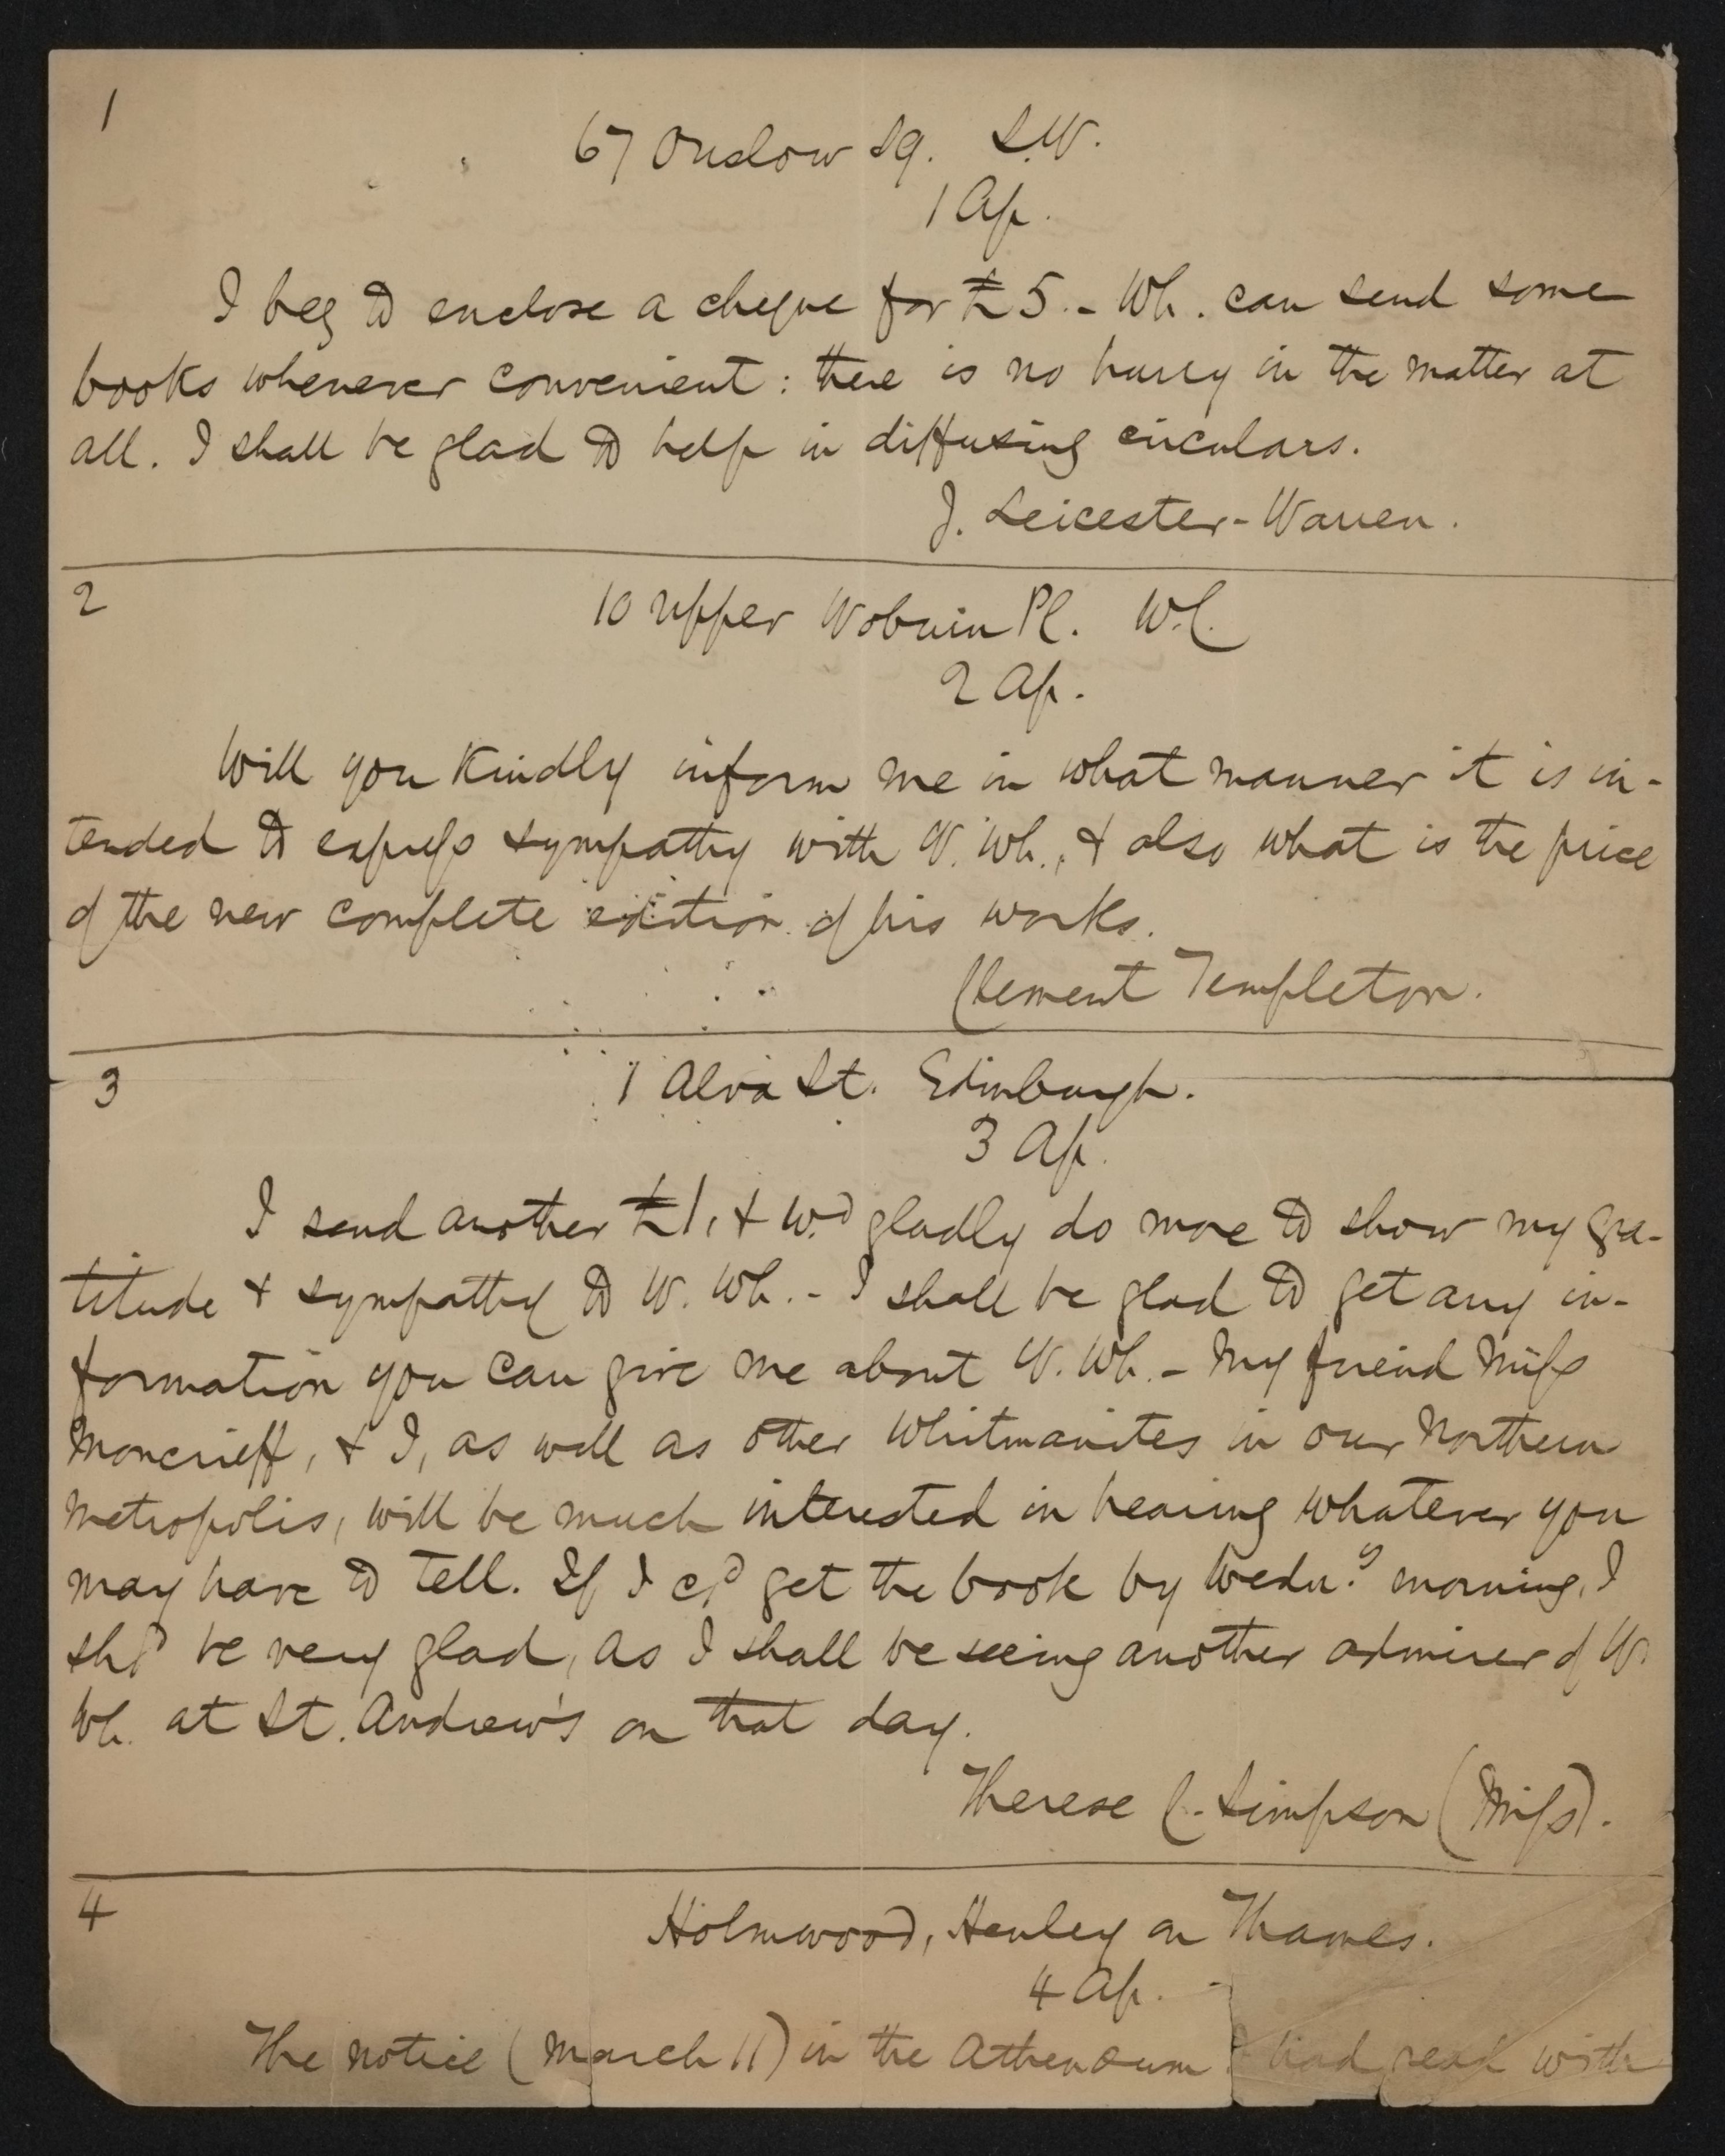 1
67 Onslow Sq. S.W.
1 Ap.
I beg to enclose a cheque for £5. - Wh. can send some
books whenever convenient: there is no hurry in the matter at
all. I shall be glad to help in diffusing circulars.
J. Leicester-Warren.
2
10 Upper Woburn Pl. W.C.
2 Ap.
Will you kindly inform me in what manner it is in-
tended to express sympathy with W. Wh., & also what is the price
of the new complete edition of his works.
Clement Templeton.
3
1 Alva St. Edinburgh.
3 Ap.
I send another £1, & wd gladly do more to show my gra-
titude & sympathy to W. Wh. - I shall be glad to get any in-
formation you can give me about W. Wh. - My friend Miss
Moncrieff, & I, as well as other Whitmanites in our Northern
Metropolis, will be much interested in hearing whatever you
may have to tell. If I cd get the book by Wedny morning, I
shd be very glad, as I shall be seeing another admirer of W.
Wh. at St. Andrew's on that day.
Therese C. Simpson (Miss).
4
Holmwood, Henley on Thames.
4 Ap.
The notice (March 11) in the Athenæum I had read with